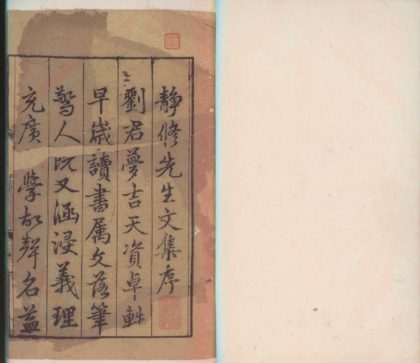 靜脩先生文集序
劉君夢吉天資卓軼
早歲讀書属文落筆
驚人既又涵浸義理
充廣 學故聲名益